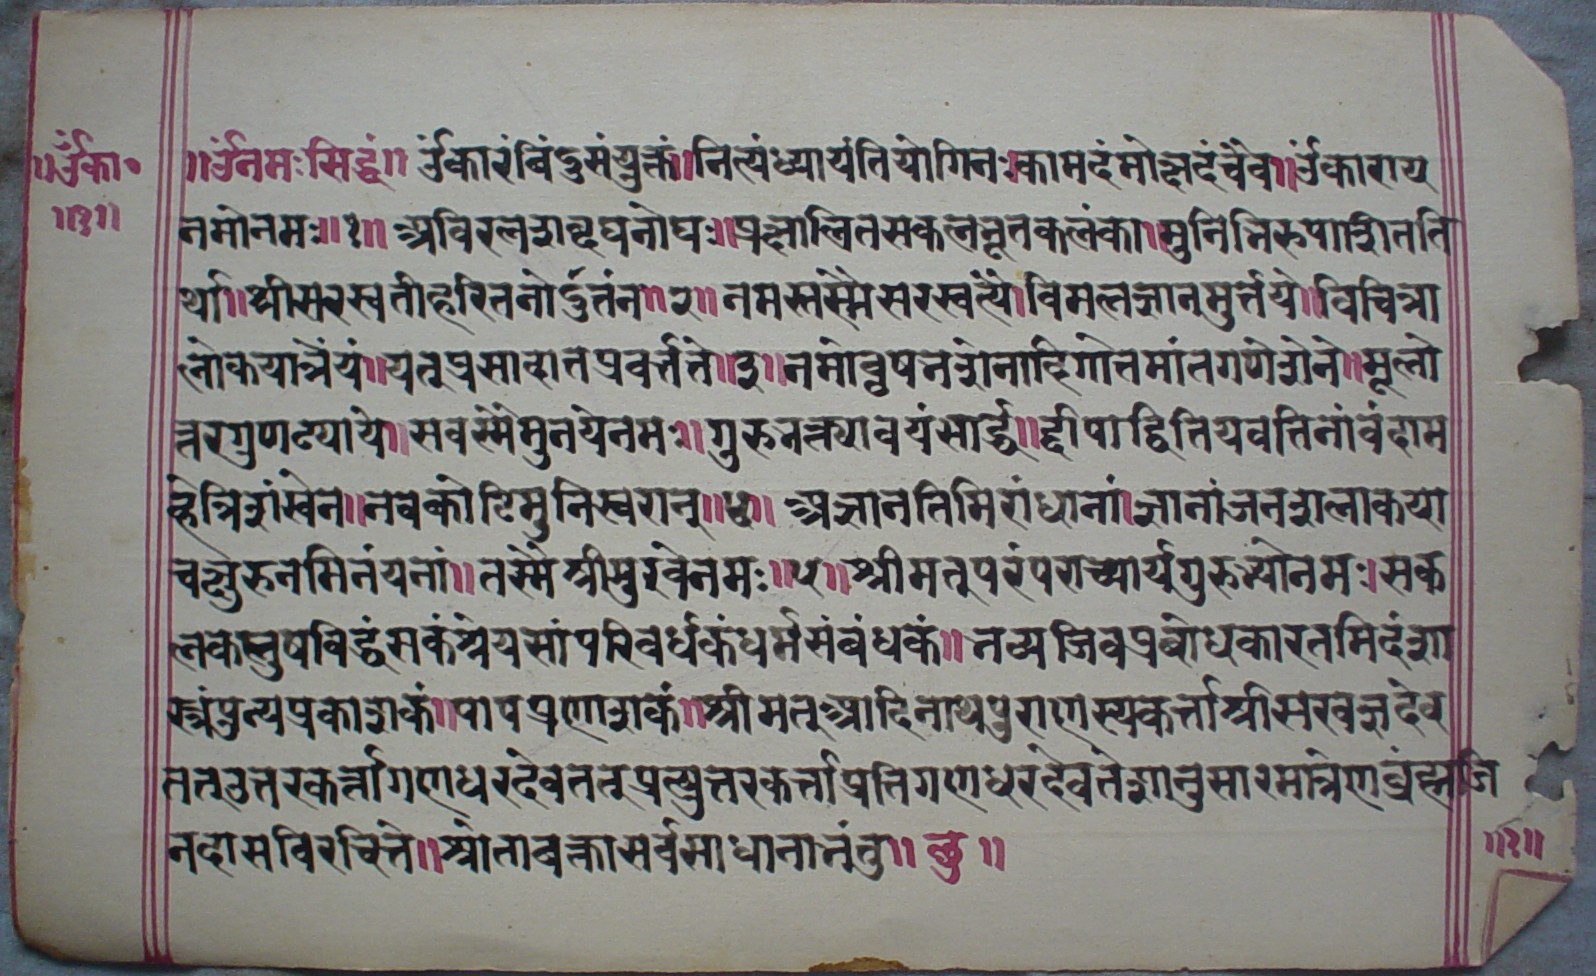 ॥ॐका०
॥१॥
॥ॐनमःसिद्धं॥ ॐकारंबिंदुसंयुक्तं॥नित्यंध्यायंतियोगिनः।कामदंमोक्षदंचैव॥ॐकाराय
नमोनमः॥१॥ अविरलशब्दघनोघः॥प्रक्षालितसकलभूतकलंका।मुनिभिरुपाशीतति
र्था॥श्रीसरस्वतीहरितनोर्दुतंन॥२॥ नमस्तस्मैसरस्वत्यै।विमलज्ञानमुर्त्तये॥विचित्रा
लोकयात्रेयं॥यत्प्रसादातप्रवर्त्तते॥३॥नमोवृषभशेनादिगोतमांतगणेशेने॥मूलो
त्तरगुणढ्याये॥सवस्मैमुनयेनमः॥गुरुभक्त्यावयंसार्द्ध॥द्दीपाद्दितियवर्तिनांवंदाम
हेत्रिशंख्येन॥नवकोटिमुनिस्वरान्॥४॥ अज्ञानतिमिरांधानां।ज्ञानांजनशलाकया
चक्षुरुनमिनंयनां॥तस्मैश्रीगुरुवेनमः॥५॥श्रीमत्परंपराच्यार्यगुरुभ्योनमः।सक
लकलुषविद्धंसकंश्रेयसांपरिवर्धकंधर्मसंबंधकं॥ भव्यजिवप्रबोधकारतमिदंशा
स्त्रंपुन्यप्रकाशकं॥पापप्रणाशकं॥श्रीमत्आदिनाथपुराणस्यकर्त्ताश्रीसरवज्ञदेव
तत्उत्तरकर्त्तागणधरदेवतत्प्रत्युत्तरकर्त्ताप्रतिगणधरदेवतेशानुसारमात्रेणब्रंह्मजि
नदासविरचिते॥श्रोतावक्तासर्वसाधानातंतु॥ छु ॥
॥१॥